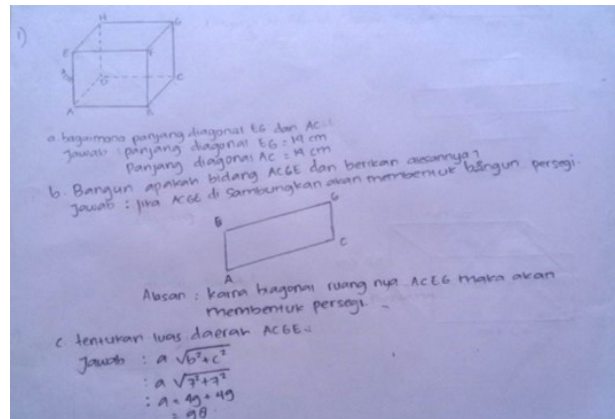 1)
H G
E F
D C
A B
a bagaimana panjang diagonal EG dan AC..
Jawab : panjang diagonal EG = 14 cm
Panjang diagonal AC = 14 cm
b. Bangun apakah bidang ACGE dan berikan alasannya?
Jawab : jika ACGE di sambungkan akan membentuk bangun persegi.
G
B
C
A
Alasan : karna diagonal ruang nya ACEG maka akan
membentuk persegi.
c. tentukan luas daerah ACGE..
Jawab : a √b²+c²
: a √7²+7²
: a = 49 + 49
= 98